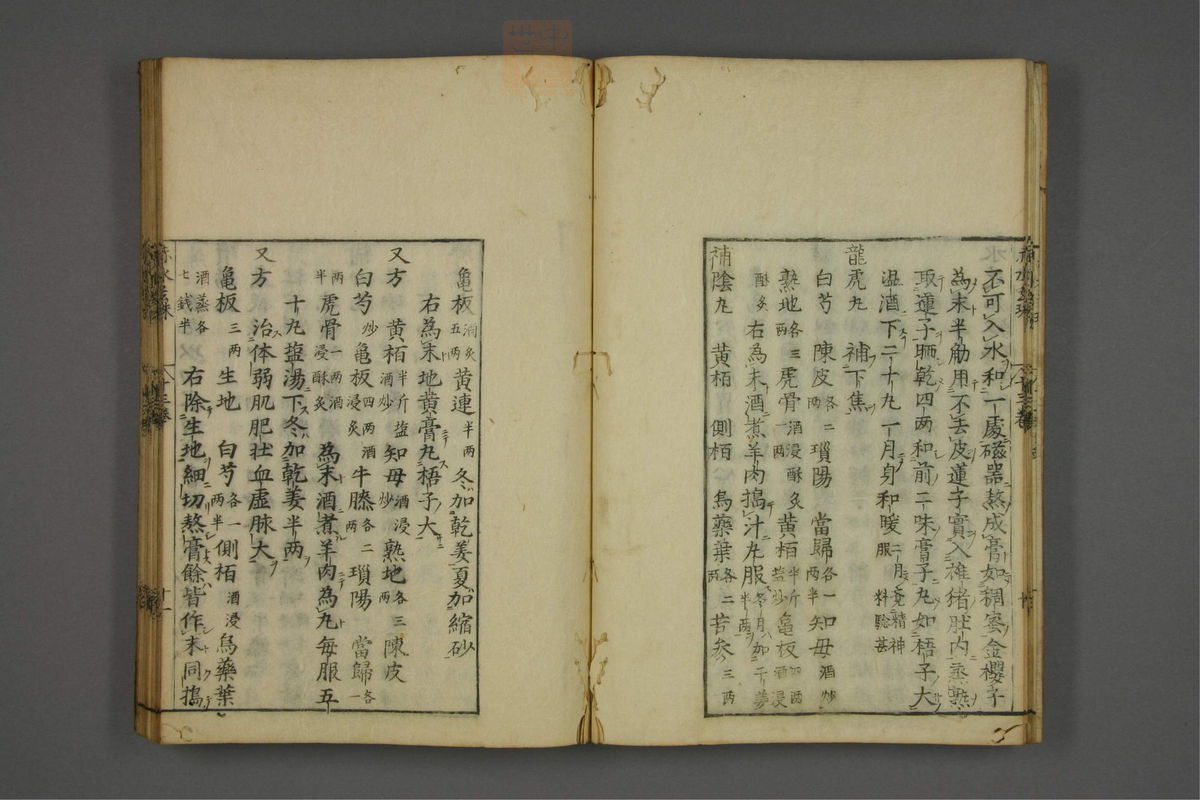 不可入水和一處磁器熬成膏如稠蜜金櫻子
為末半觔用不去皮蓮子實入雄猪肚内蒸熟
取蓮子晒乾四两和前二味膏子丸如梧子大
温酒下二十丸一月身和暖服二月精神
龍虎丸 補下焦
白芍 陳皮各二两 瑣陽 當歸各一两半 知母酒炒
熟地各三两 虎骨一两酒浸酥炙 黄栢半斤塩炒 亀板四两酒浸
酥炙 右為末酒煮羊肉搗汁丸服冬月加干姜半两
補陰丸 黄栢 側栢 烏藥葉各二两 苦参三两
亀板五两酒炙 黄連半两 冬加乾姜夏加縮砂
右為末地黄膏丸梧子大
又方 黄栢半斤塩酒炒 知母酒浸炒 熟地各三两 陳皮
白芍炒 亀板四两酒浸炙 牛膝各二两 瑣陽 當歸各一
两半 虎骨一两酒浸酥炙 為末酒煮羊肉為丸每服五
十丸塩湯下冬加乾姜半两
又方 治体弱肌肥壮血虚脉大
亀板三两 生地 白芍各一两半 側栢酒浸 烏藥葉
酒蒸各七錢半 右除生地細切熬膏餘皆作末同搗